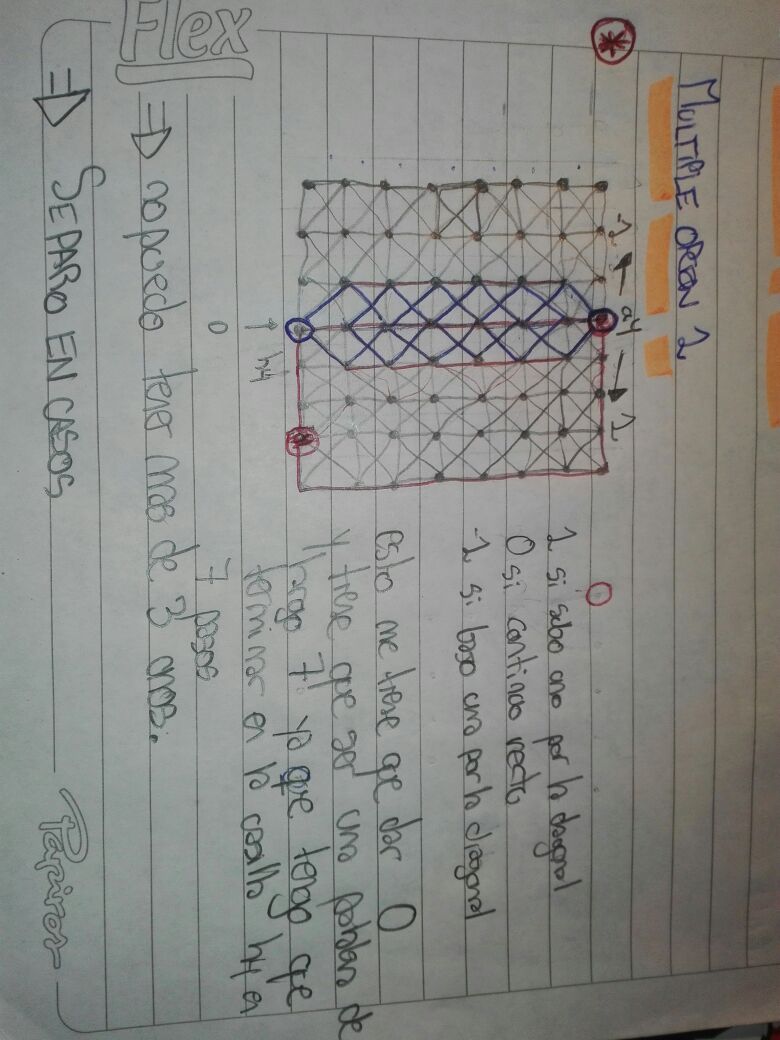 MULTIPLE ORION 2
-1 a4 1
1 si subo uno por la diagonal
0 si continuo recto
-1 si bajo uno por la diagonal
esto me tiene que dar 0
y tiene que ser una palabra de
largo 7 ya que tengo que
terminar en la casilla h4 en
7 pasos
h4
0
⇒ no puedo tener mas de 3 unos.
⇒ SEPARO EN CASOS
Flex
Papiros